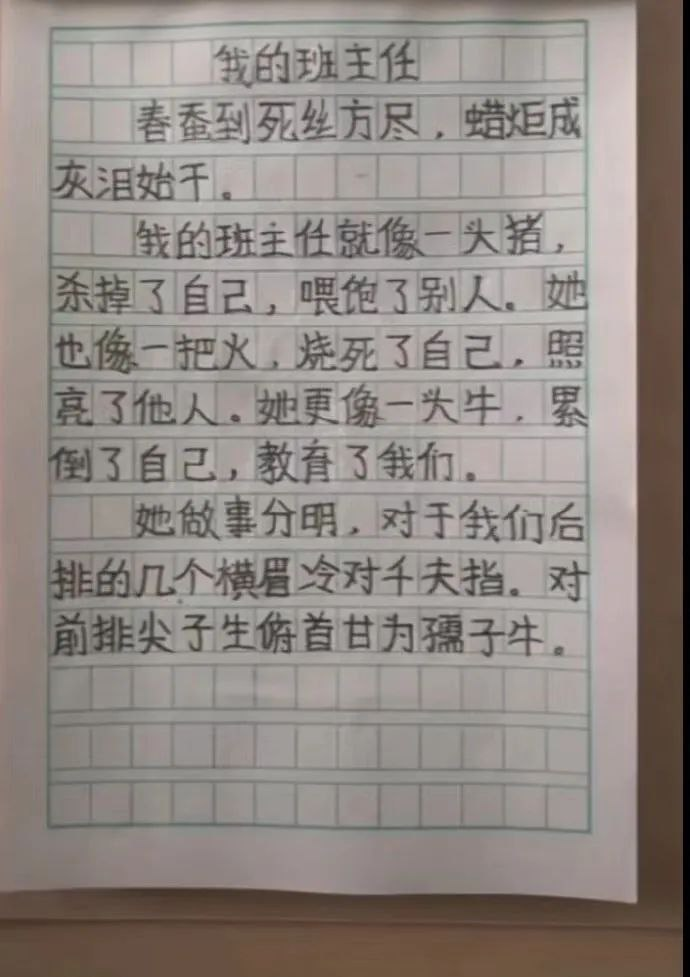 我的班主任
春蚕到死丝方尽，蜡炬成
灰泪始干。
我的班主任就像一头猪，
杀掉了自己，喂饱了别人。她
也像一把火，烧死了自己，照
亮了他人。她更像一头牛，累
倒了自己，教育了我们。
她做事分明，对于我们后
排的几个横眉冷对千夫指。对
前排尖子生俯首甘为孺子牛。